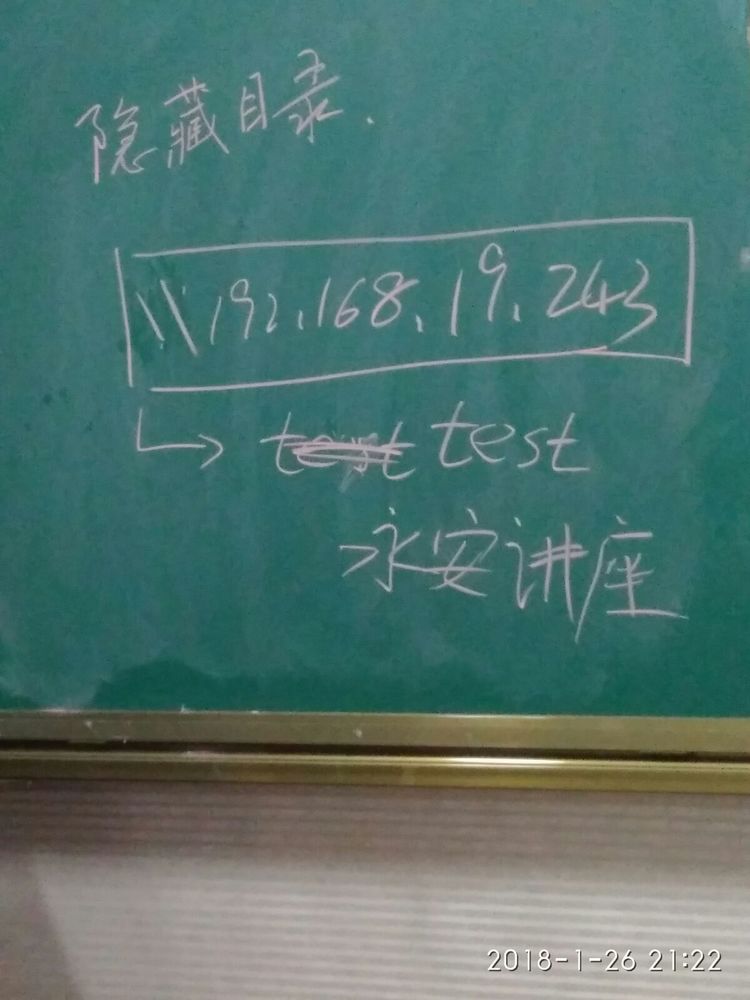 隐藏目录.
\\192.168.19.243
↳ test test
永安讲座
2018-1-26 21:22